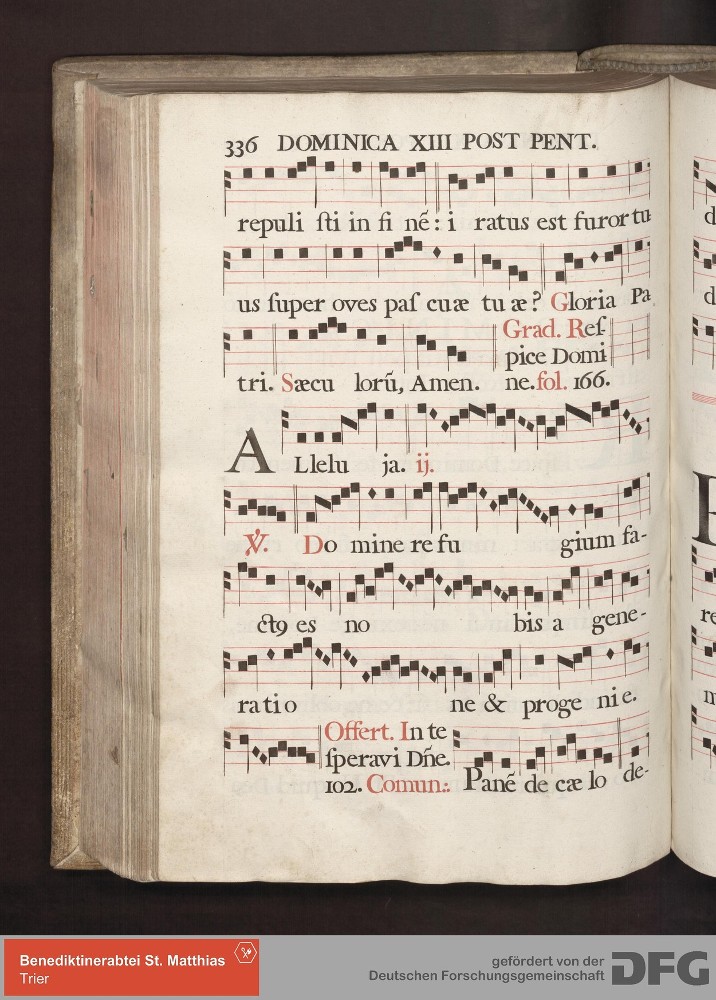 336 DOMINICA XIII POST PENT.
repuli ſti in fi né̃: i ratus est furor tu
us ſuper oves paſ cuæ tu æ? Gloria Pa
Grad. Reſ
pice Domi
tri. Sæcu lorũ, Amen. ne. fol. 166.
ALlelu ja. ij.
℣. Do mine re fu gium fa-
ctꝰ es no bis a gene-
ratio ne & proge nie.
Offert. In te
ſperavi Dñe.
102. Comun.: Panẽ de cæ lo de-
Benediktinerabtei St. Matthias
Trier
gefördert von der
Deutschen Forschungsgemeinschaft DFG